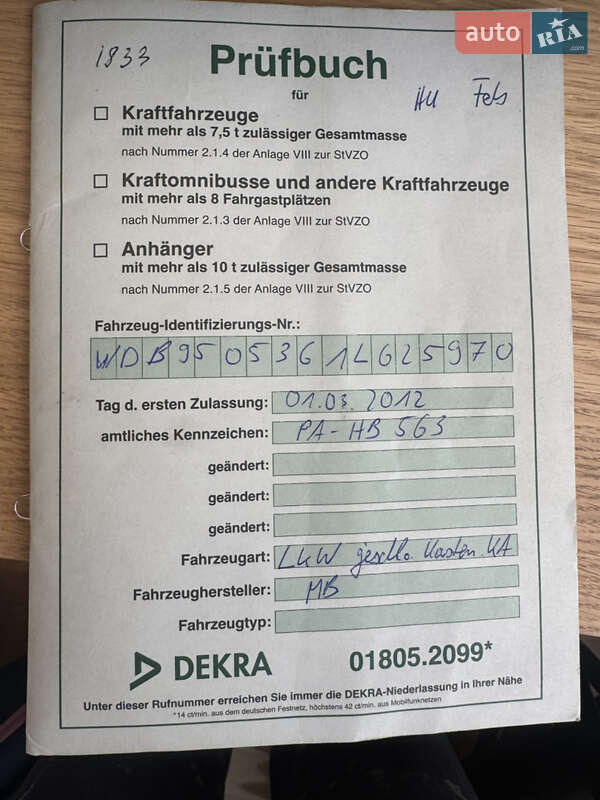 auto RIA.com
1833
Prüfbuch
für
HU Feb
Kraftfahrzeuge
mit mehr als 7,5 t zulässiger Gesamtmasse
nach Nummer 2.1.4 der Anlage VIII zur StVZO
Kraftomnibusse und andere Kraftfahrzeuge
mit mehr als 8 Fahrgastplätzen
nach Nummer 2.1.3 der Anlage VIII zur StVZO
Anhänger
mit mehr als 10 t zulässiger Gesamtmasse
nach Nummer 2.1.5 der Anlage VIII zur StVZO
Fahrzeug-Identifizierungs-Nr.:
WDB9505361L625970
Tag d. ersten Zulassung: 01.03.2012
amtliches Kennzeichen: PA-HB 563
geändert:
geändert:
geändert:
Fahrzeugart: LKW geschlo. Kasten KA
Fahrzeughersteller: MB
Fahrzeugtyp:
DEKRA 01805.2099*
Unter dieser Rufnummer erreichen Sie immer die DEKRA-Niederlassung in Ihrer Nähe
*14 ct/min. aus dem deutschen Festnetz, höchstens 42 ct/min. aus Mobilfunknetzen